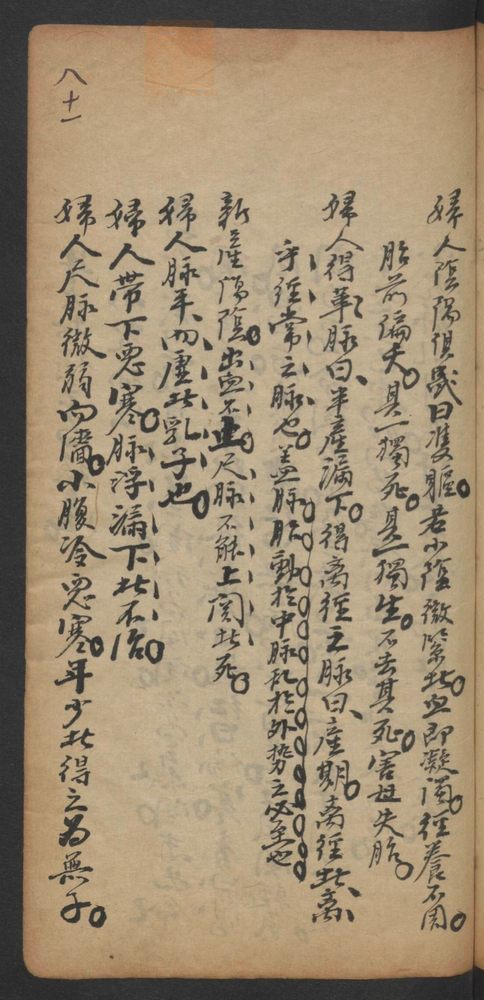 婦人陰陽俱盛曰雙軀。若少陰微緊者。血即凝濁。經養不周。
胎前偏夭。其一獨死。其一獨生。不去其死。害母失胎。
婦人得革脉曰、半產漏下。得离徑之脉曰、產期。离徑者、离
乎徑常之脉也。盖脉胎動於中脉乱於外勢之必至也
新產傷陰。出血不止。尺脉不能上関者死。
婦人脉平、而虛者乳子也。
婦人帶下惡寒。脉浮漏下者不治。
婦人尺脉微弱而濇。小腹冷惡寒。年少者得之為無子。
八十一